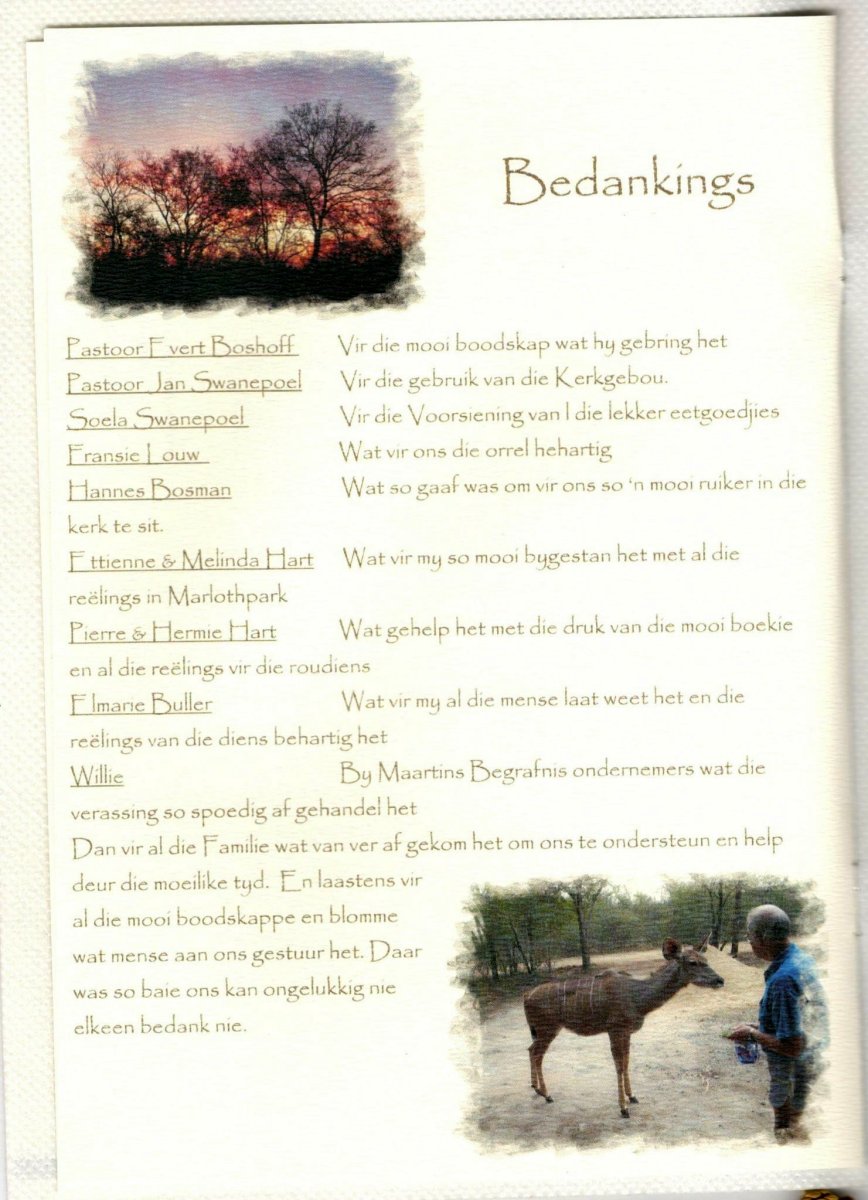 Bedankings
Pastoor Evert Boshoff Vir die mooi boodskap wat hy gebring het
Pastoor Jan Swanepoel Vir die gebruik van die Kerkgebou.
Soela Swanepoel Vir die Voorsiening van l die lekker eetgoedjies
Fransie Louw Wat vir ons die orrel hehartig
Hannes Bosman Wat so gaaf was om vir ons so 'n mooi ruiker in die
kerk te sit.
Ettienne & Melinda Hart Wat vir my so mooi bygestan het met al die
reëlings in Marlothpark
Pierre & Hermie Hart Wat gehelp het met die druk van die mooi boekie
en al die reëlings vir die roudiens
Elmarie Buller Wat vir my al die mense laat weet het en die
reëlings van die diens behartig het
Willie By Maartins Begrafnis ondernemers wat die
verassing so spoedig af gehandel het
Dan vir al die Familie wat van ver af gekom het om ons te ondersteun en help
deur die moeilike tyd. En laastens vir
al die mooi boodskappe en blomme
wat mense aan ons gestuur het. Daar
was so baie ons kan ongelukkig nie
elkeen bedank nie.